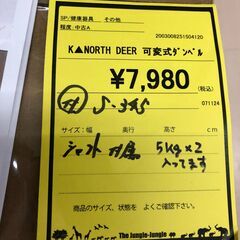 SP/健康器具 その他
程度 中古A
2003008251504120
K▲NORTH DEER 可変式ダンベル
¥7,980
(税込)
071124
J-345
サイズ:幅 奥行 高さ cm
シャフト付属 5kg×2
入ってます
商品のサイズ、状態を よくご確認下さい。
The Jungle-Jungle